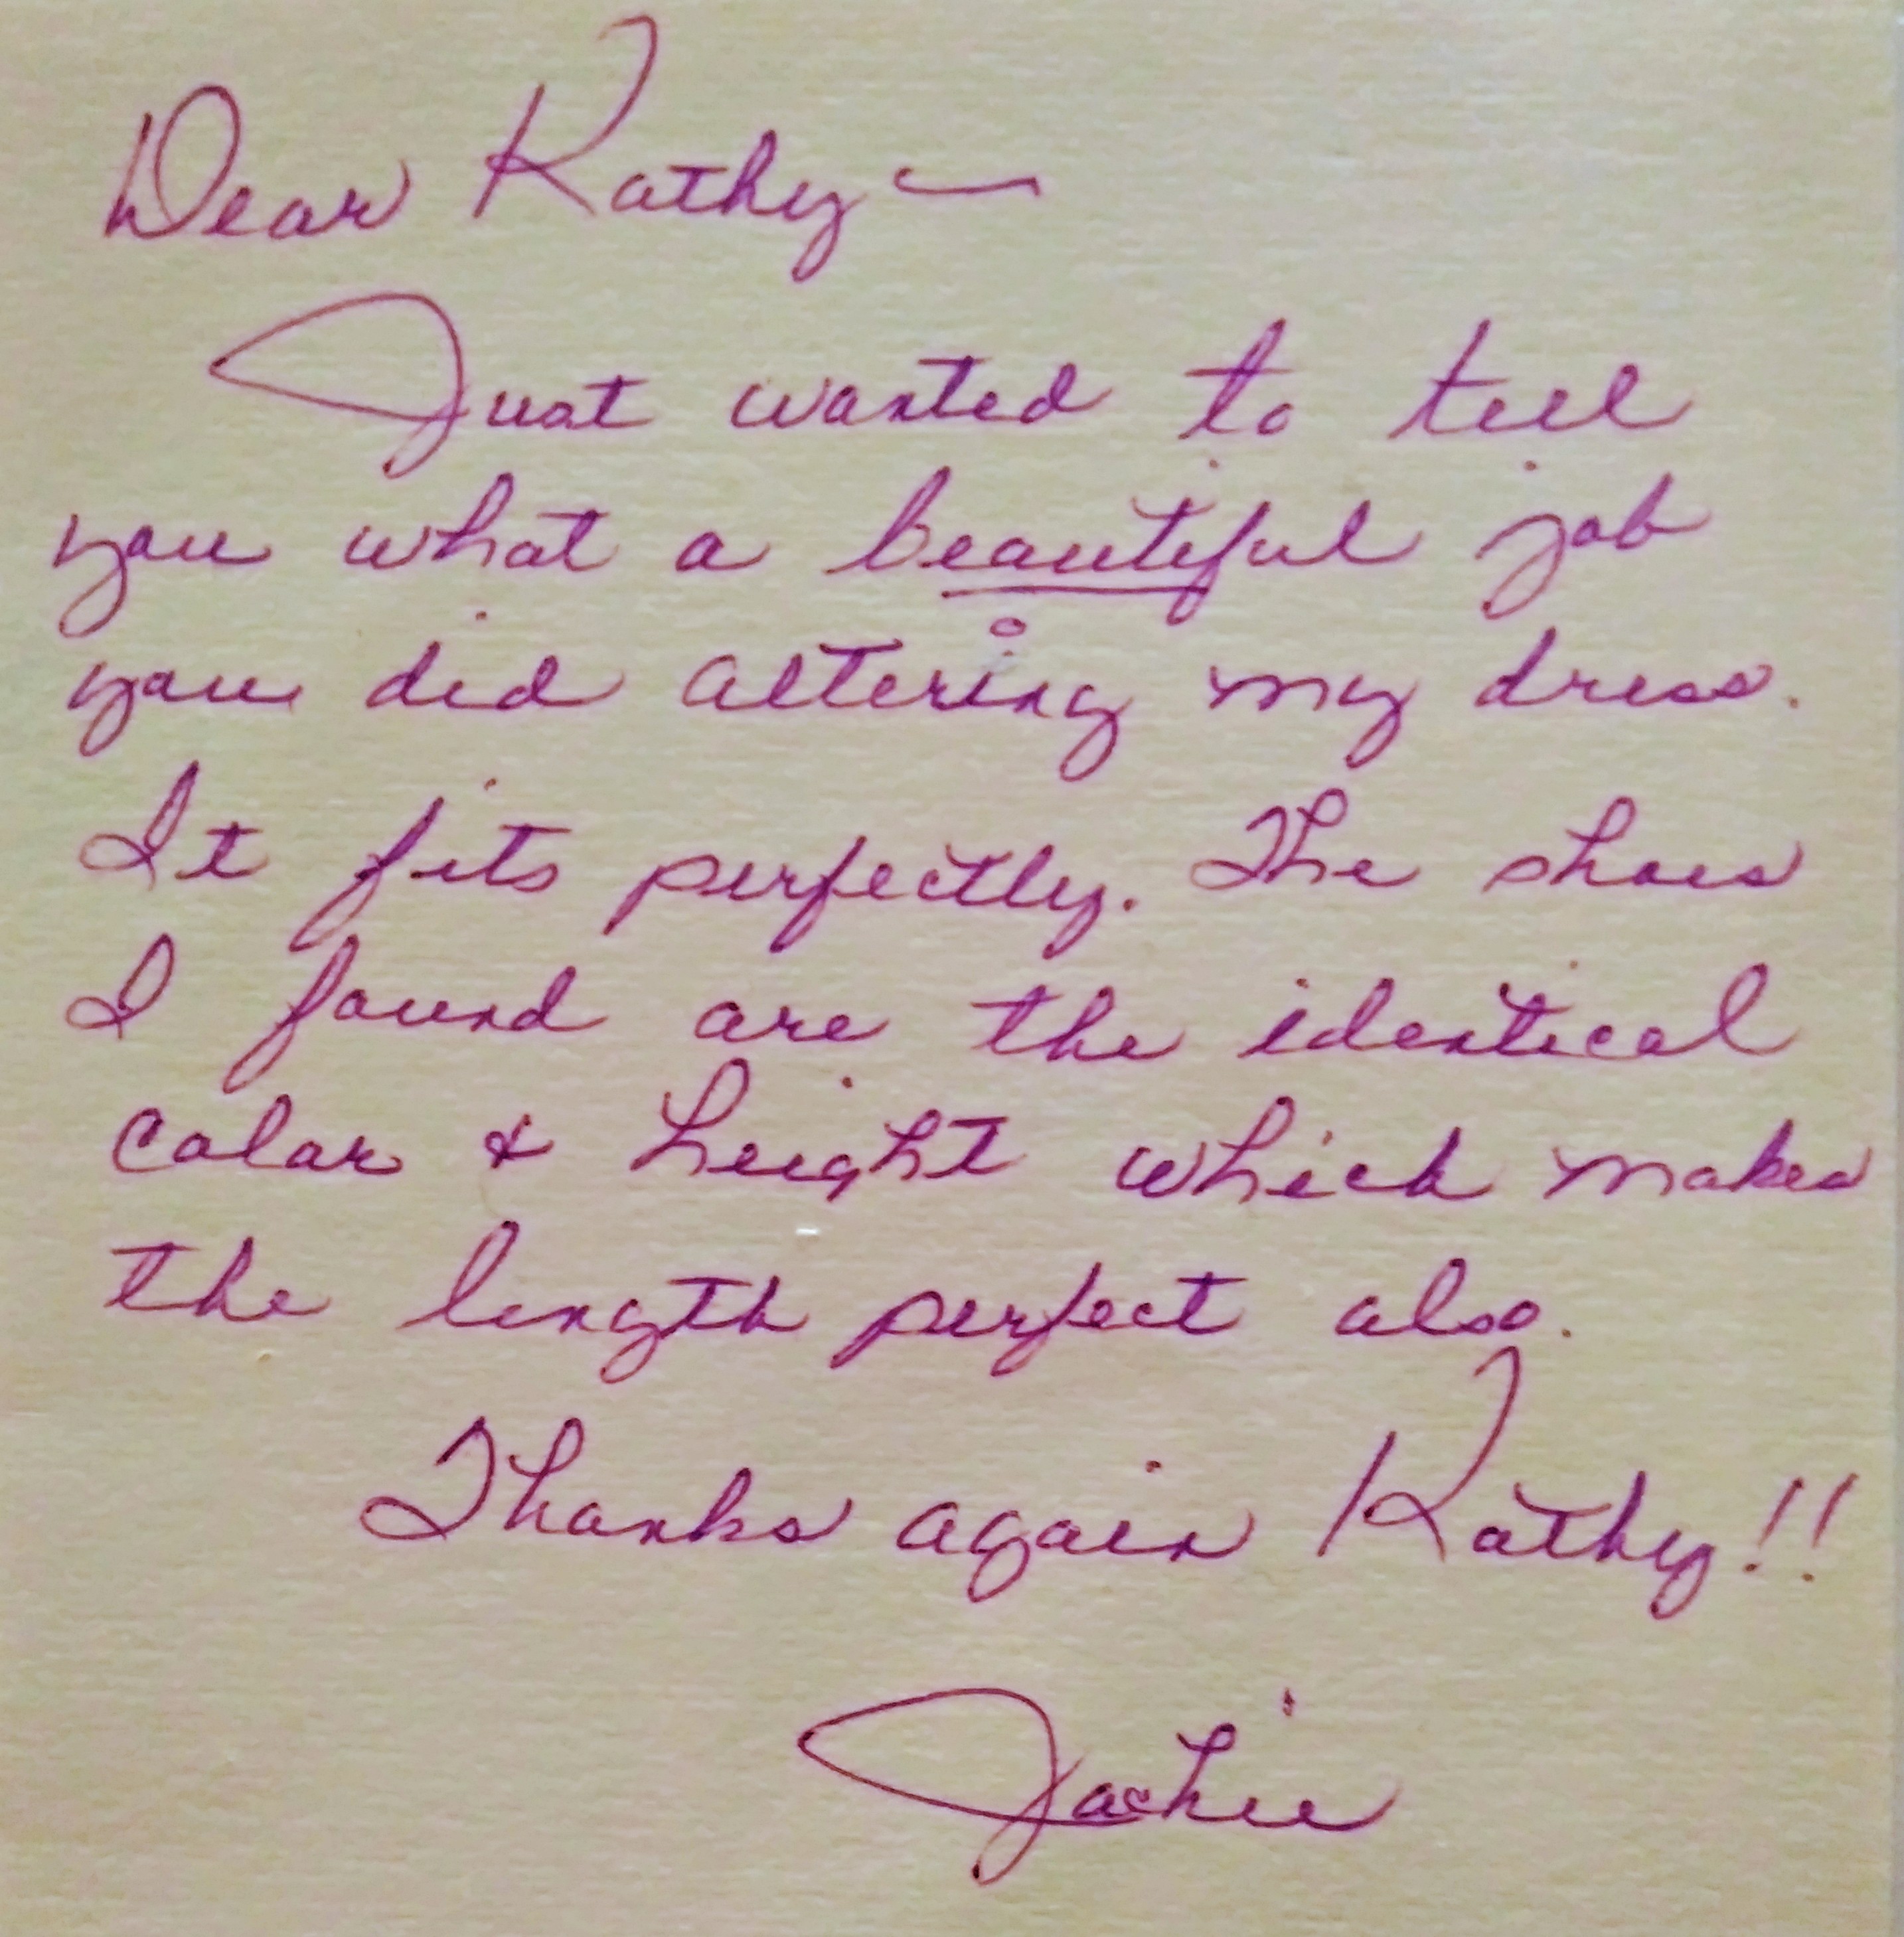 Dear Kathy —
Just wanted to tell
you what a beautiful job
you did altering my dress.
It fits perfectly. The shoes
I found are the identical
color & height which makes
the length perfect also.
Thanks again Kathy!!
Jackie